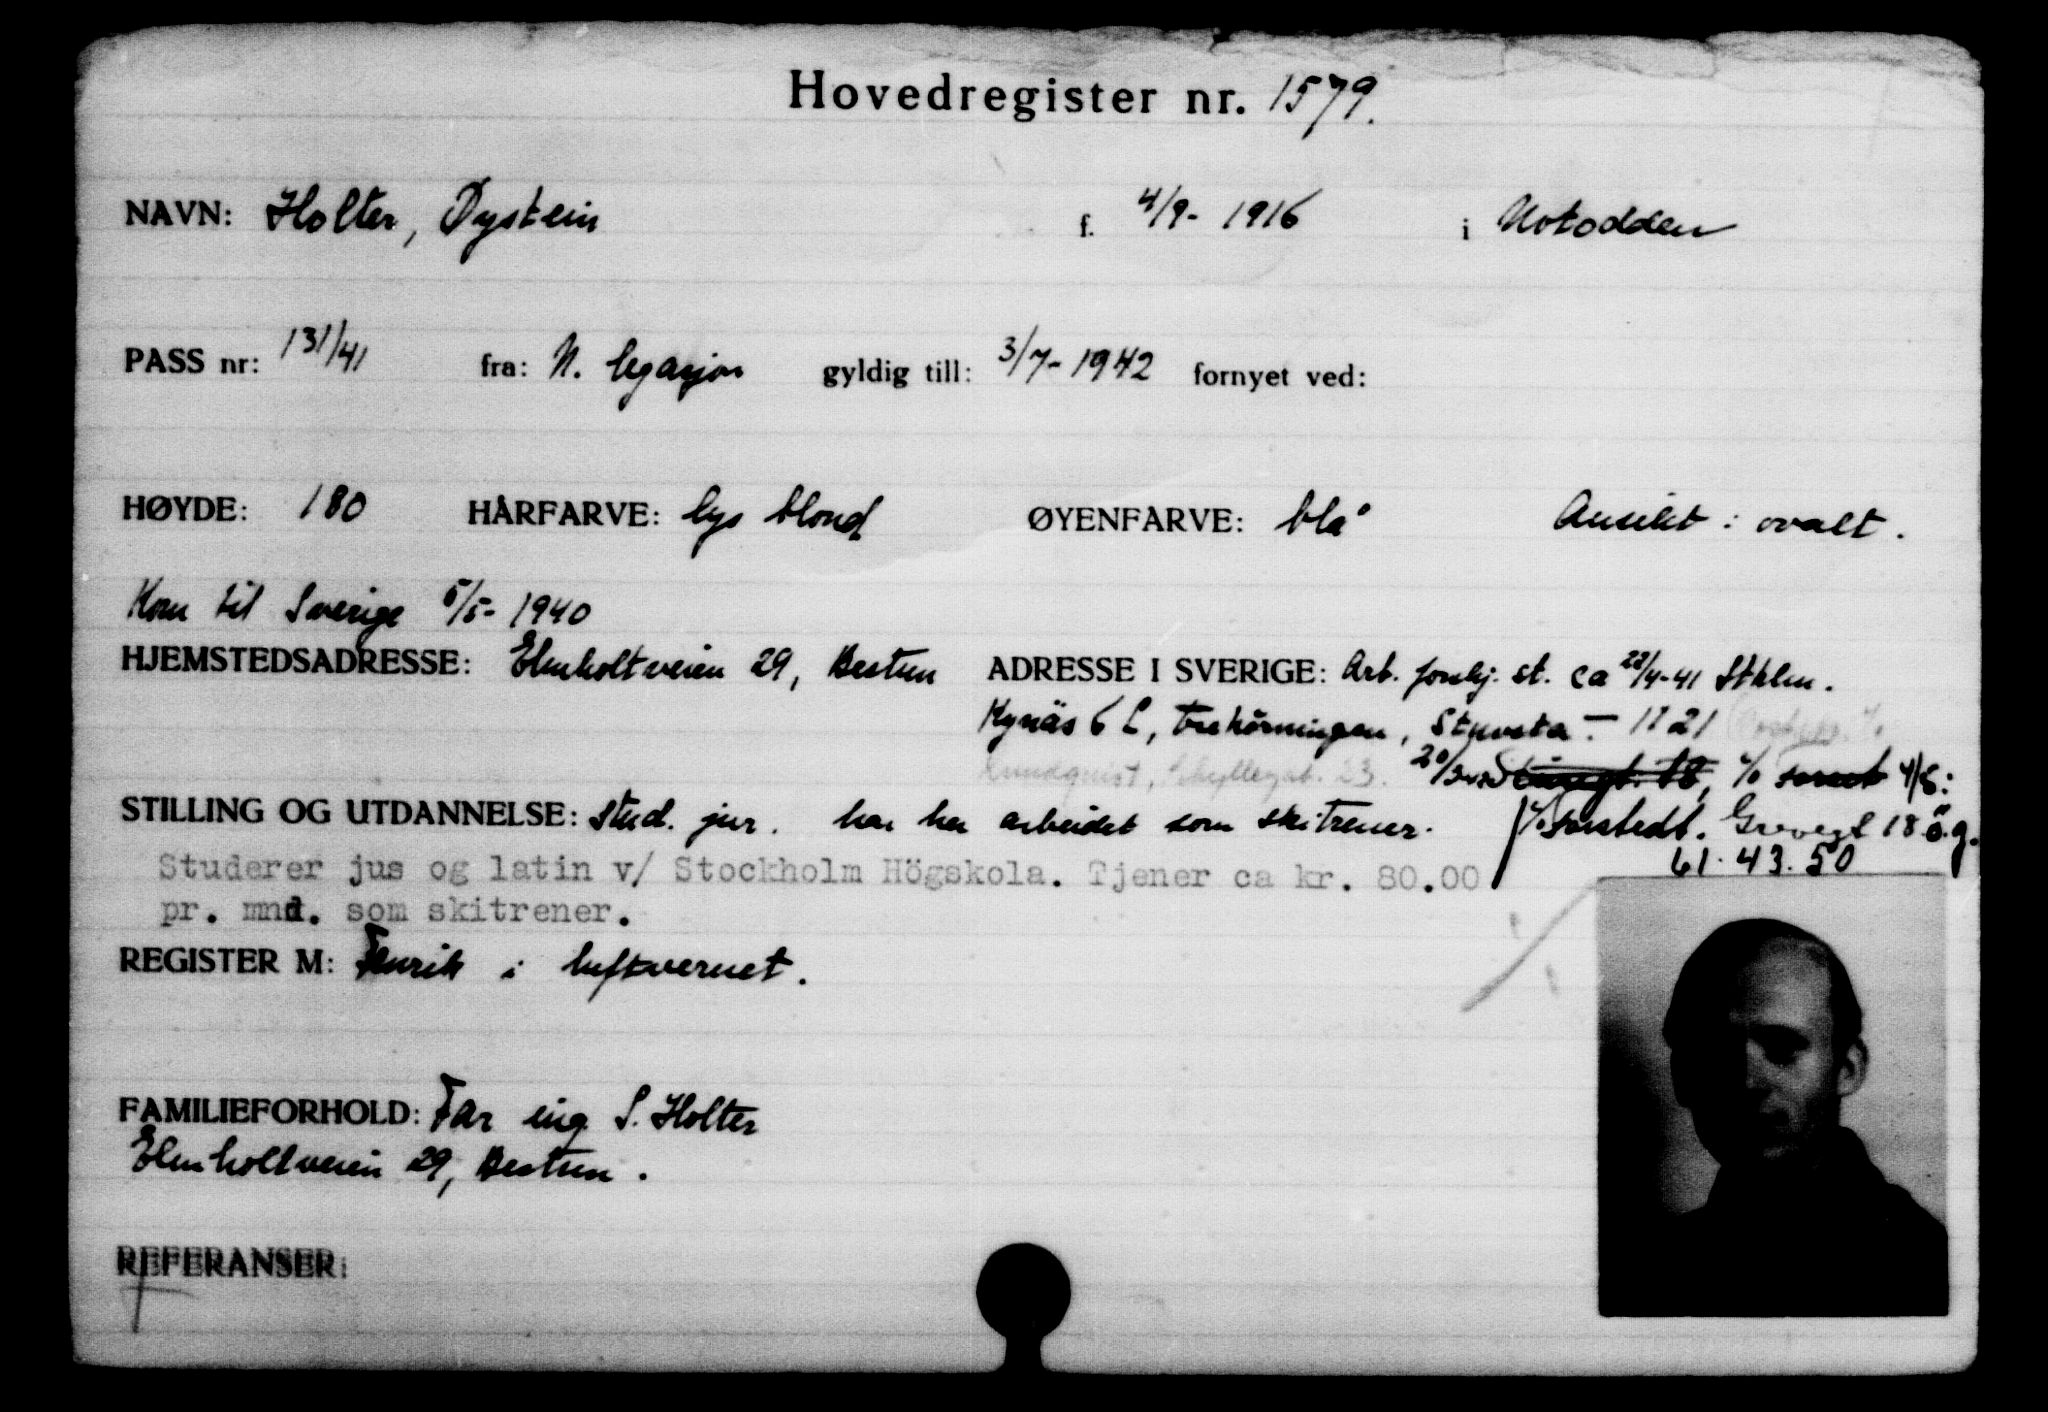 Hovedregister nr. 1579.
NAVN: Holter, Øystein f. 4/9- 1916 i Notodden
PASS nr: 131/41 fra: N. legasjon gyldig till: 3/7- 1942 fornyet ved:
HØYDE: 180 HÅRFARVE: lys blond ØYENFARVE: blå Ansikt: ovalt.
Kom til Sverige 5/5- 1940
HJEMSTEDSADRESSE: Elmholtveien 29, Bestun ADRESSE I SVERIGE: Arb. st. ca 22/4-41 Sthlm.
6 Styvsta - 1121
Lundquist, Skyllegat. 23.
STILLING OG UTDANNELSE: stud. jur. har her arbeidet som skitrener. Grevegt 18 ö.g.
61.43.50
Studerer jus og latin v/ Stockholm Högskola. Tjener ca kr. 80.00
pr. mnd. som skitrener.
REGISTER M: Fenrik i luftvernet.
FAMILIEFORHOLD: Far ing S. Holter
Elmholtveien 29, Bestun.
REFERANSER: